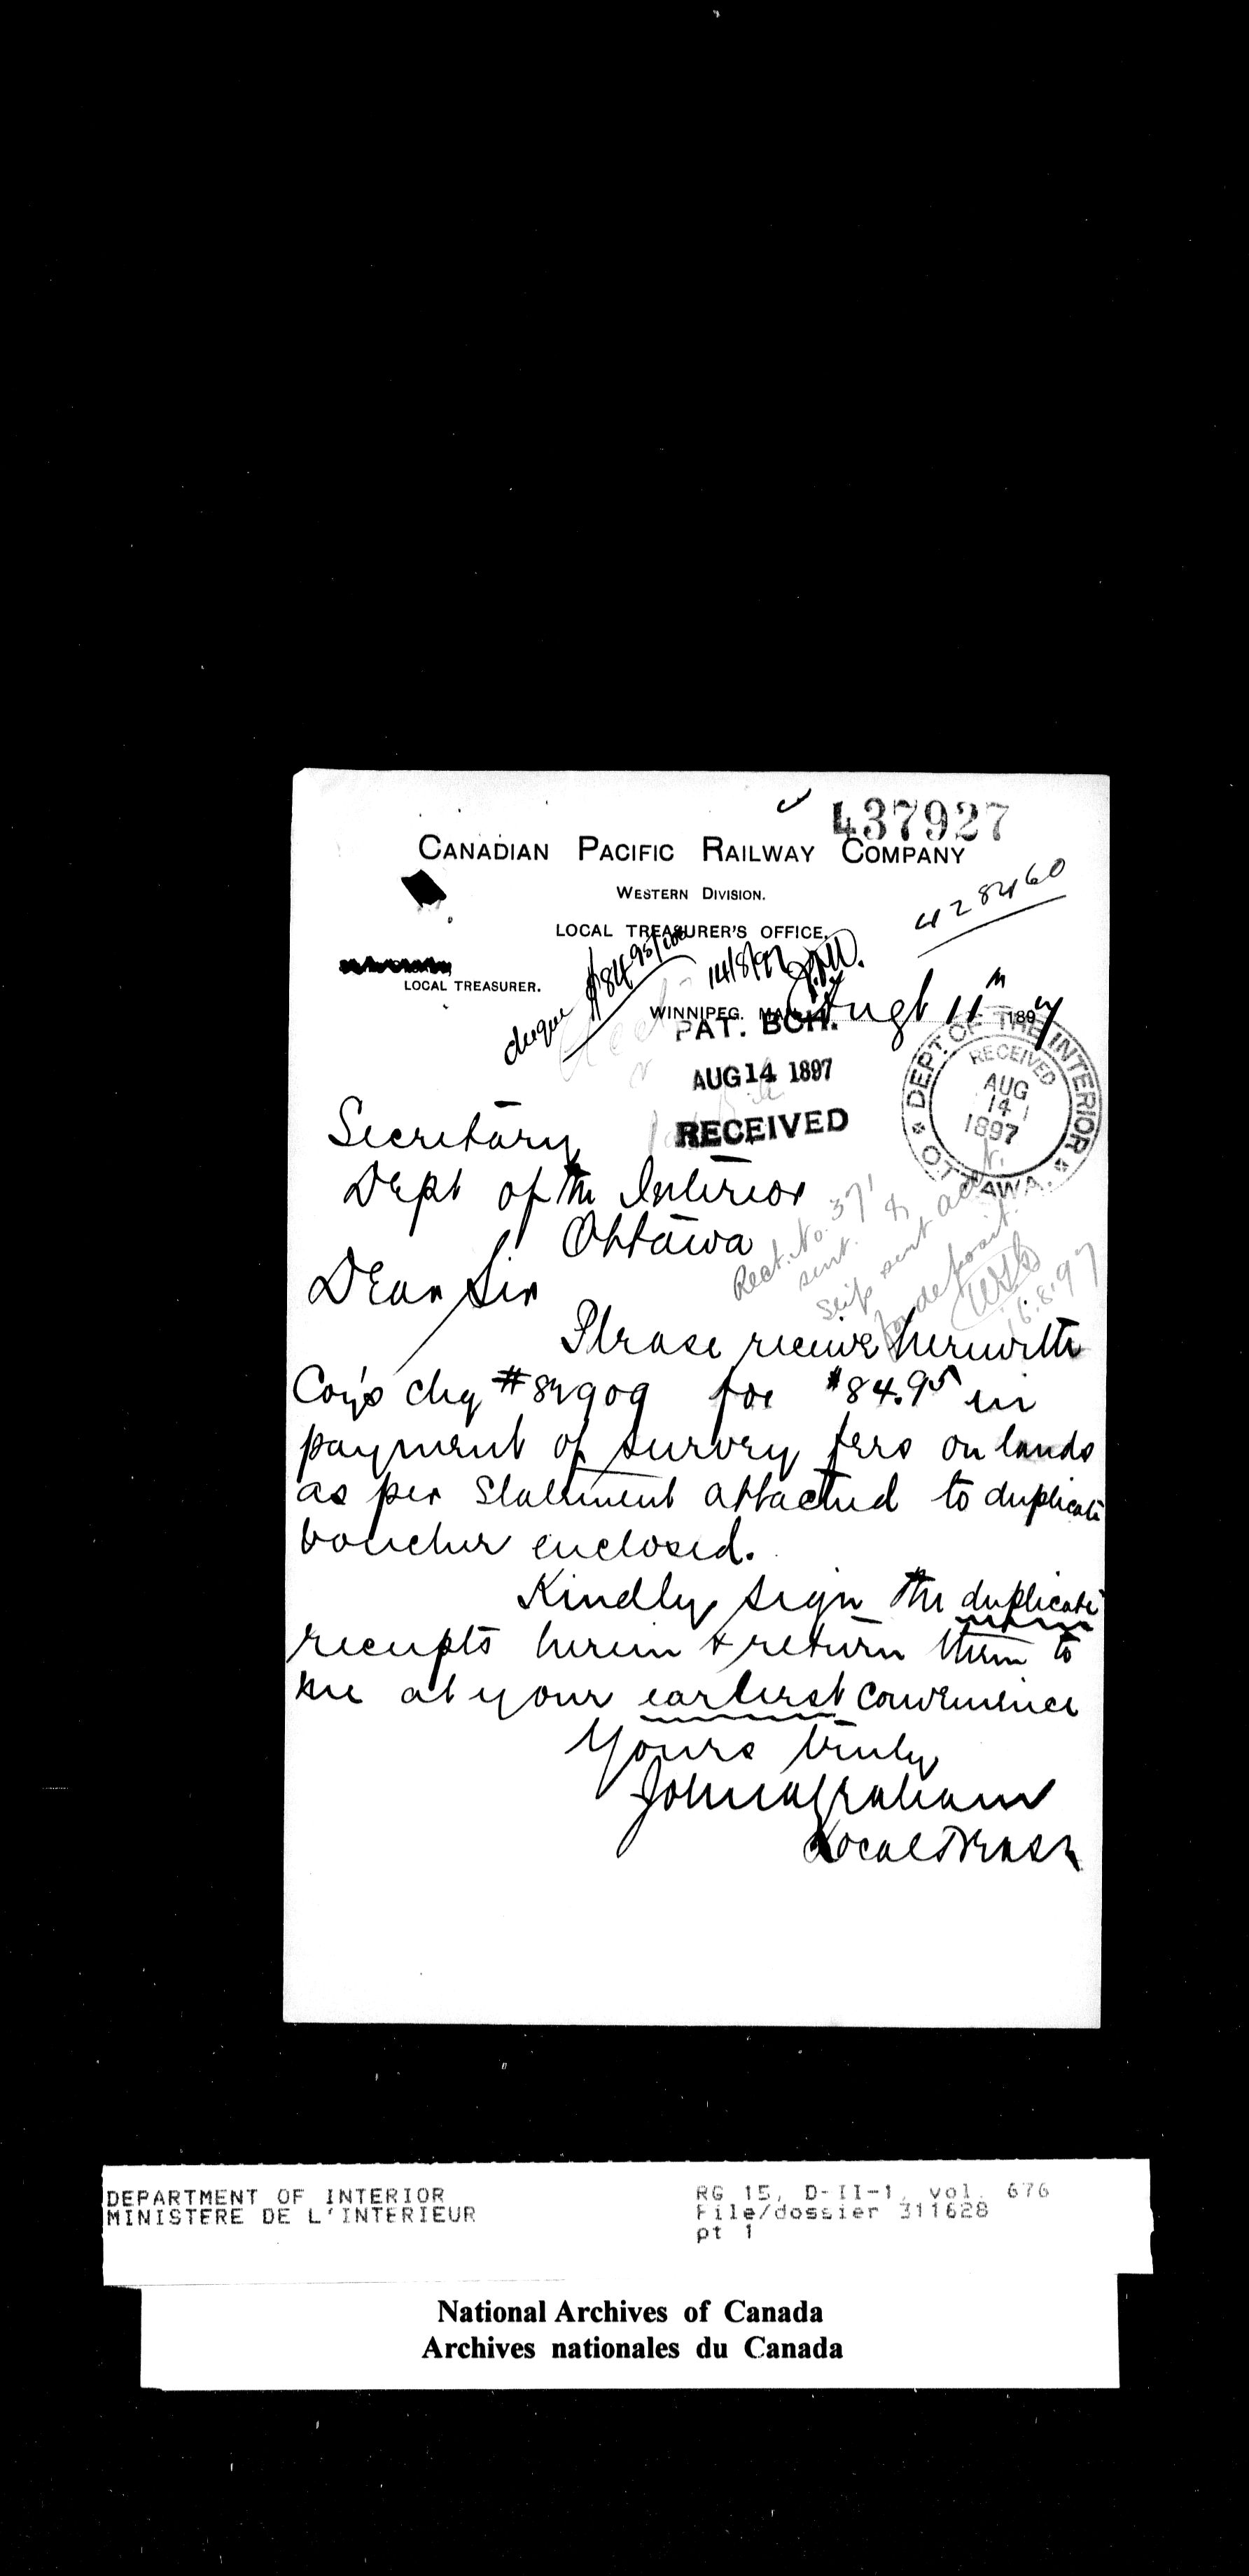 437927
CANADIAN PACIFIC RAILWAY COMPANY
WESTERN DIVISION.
428460
LOCAL TREASURER'S OFFICE,
LOCAL TREASURER.
cheque $84 95/100
14/8/97
WINNIPEG. MAN. Augt 11th 1897
PAT. BCH.
AUG 14 1897
RECEIVED
DEPT OF THE INTERIOR
RECEIVED
AUG
14
1897
OTTAWA.
Secretary
Dept of the Interior
Ottawa
Rect. No. 37 &
sent.
slip sent acct.
for deposit.
16.8.97
Dear Sir
Please receive herewith
Coy's chq #82909 for $84.95 in
payment of survey fees on lands
as per Statement attached to duplicate
voucher enclosed.
Kindly sign the duplicate
receipts herein & return them to
me at your earliest convenience
Yours truly
John A Graham
Local Treasr
DEPARTMENT OF INTERIOR
MINISTERE DE L'INTERIEUR
RG 15, D-II-1, vol. 676
File/dossier 311628
pt 1
National Archives of Canada
Archives nationales du Canada